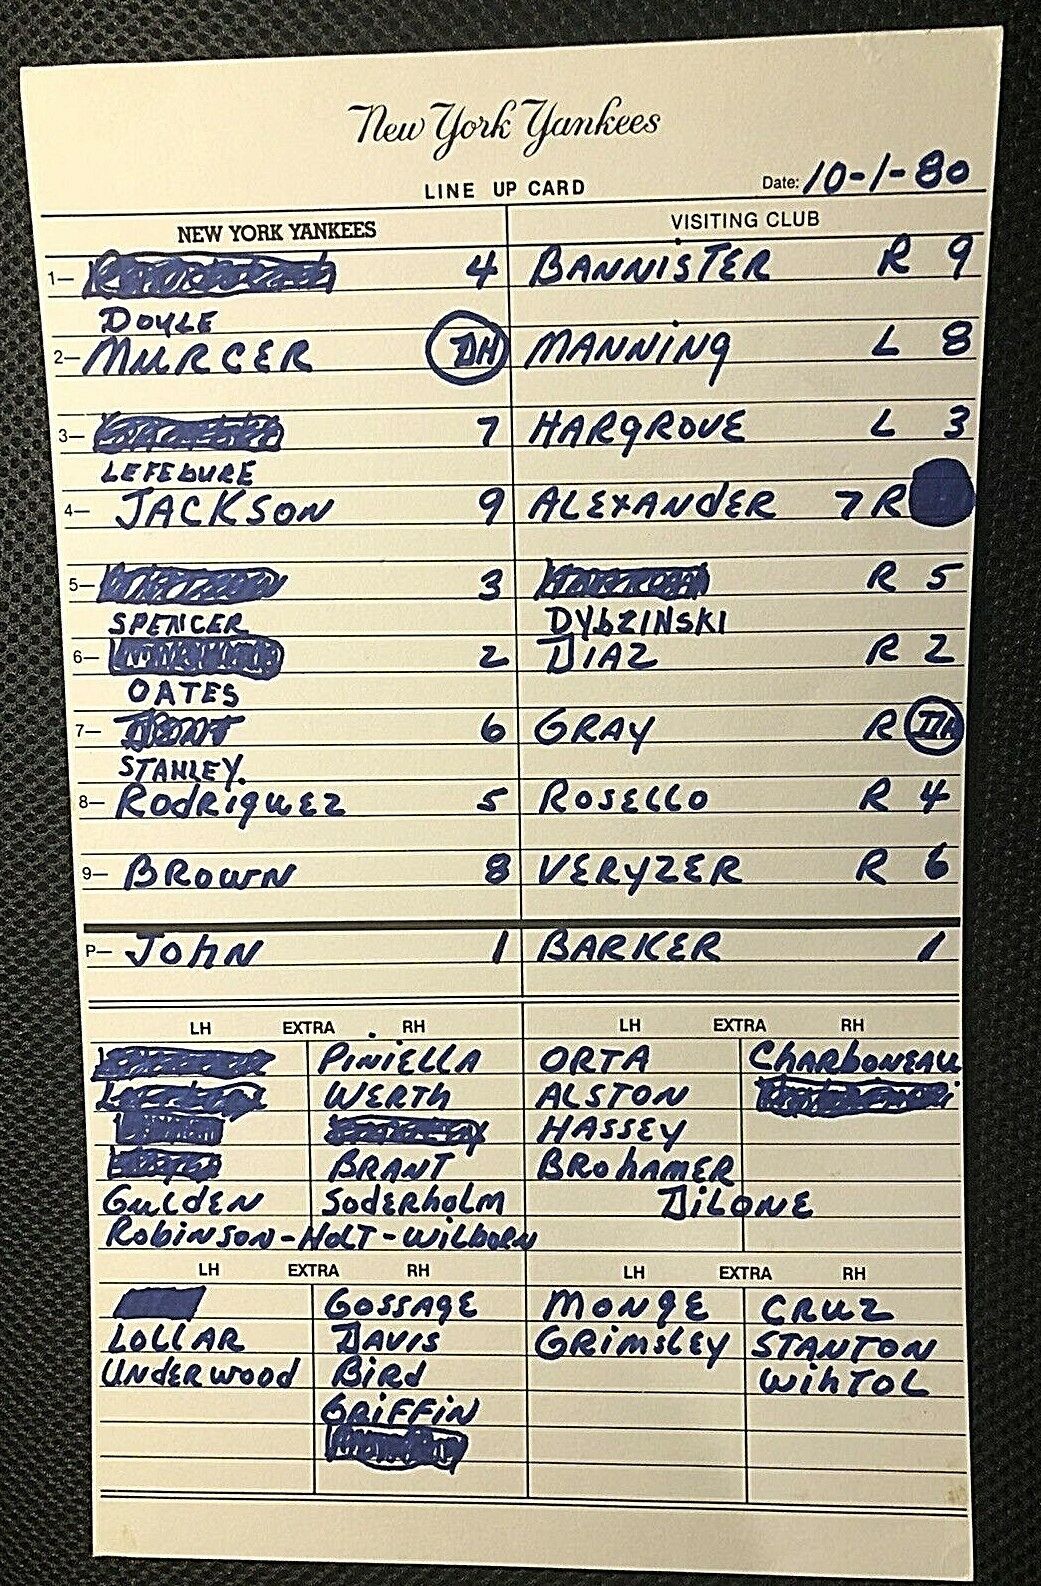 New York Yankees
LINE UP CARD
Date: 10-1-80
NEW YORK YANKEES VISITING CLUB
1— 4 BANNISTER R 9
DOYLE
2— MURCER DH MANNING L 8
3— 7 HARGROVE L 3
LEFEBURE
4— JACKSON 9 ALEXANDER 7 R
5— 3 R 5
SPENCER DYBZINSKI
6— 2 DIAZ R 2
OATES
7— 6 GRAY R DH
STANLEY.
8— RODRIQUEZ 5 ROSELLO R 4
9— BROWN 8 VERYZER R 6
P— JOHN 1 BARKER 1
LH EXTRA RH LH EXTRA RH
PINIELLA ORTA CHARBONEAU
WERTH ALSTON
HASSEY
BRANT BROHAMER
GULDEN SODERHOLM DILONE
ROBINSON-HOLT-WILBORN
LH EXTRA RH LH EXTRA RH
GOSSAGE MONGE CRUZ
LOLLAR DAVIS GRIMSLEY STANTON
UNDERWOOD BIRD WIHTOL
GRIFFIN